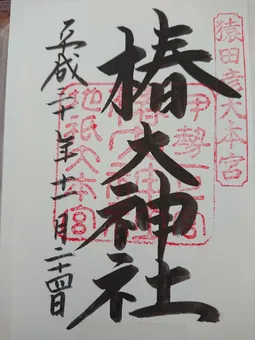 猿田彦大本宮
伊勢一之宮
椿大神社
地祇大本宮
平成二十年十一月二十四日